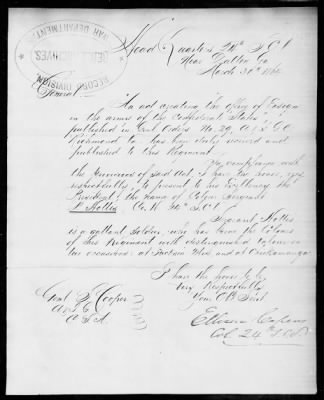 RECORD DIVISION
REBEL ARCHIVES
WAR DEPARTMENT
Head Quarters 24th S.C.V
Near Dalton Ga
March 30th 1864
General
An act creating the office of Ensign
in the armies of the Confederate States,
published in Genl Orders No. 29, A & I G O
Richmond Va has been duly received and
published to this Regiment.
In compliance with
the provisions of said Act, I have the honor, very
respectfully, to present to his Excellency the
President, the name of Color Sergeant
Hollis Co. 24th S.C.V
Sergeant Hollis
is a gallant soldier, who has borne the Colors
of this Regiment with distinguished valor on
two occasions: at Jackson Miss and at Chickamauga
I have the honor to be
Very Respectfully
Your Obt Servt
Ellison Capers
Col 24th S.C.V
Genl S Cooper
A & I G
C.S.A.